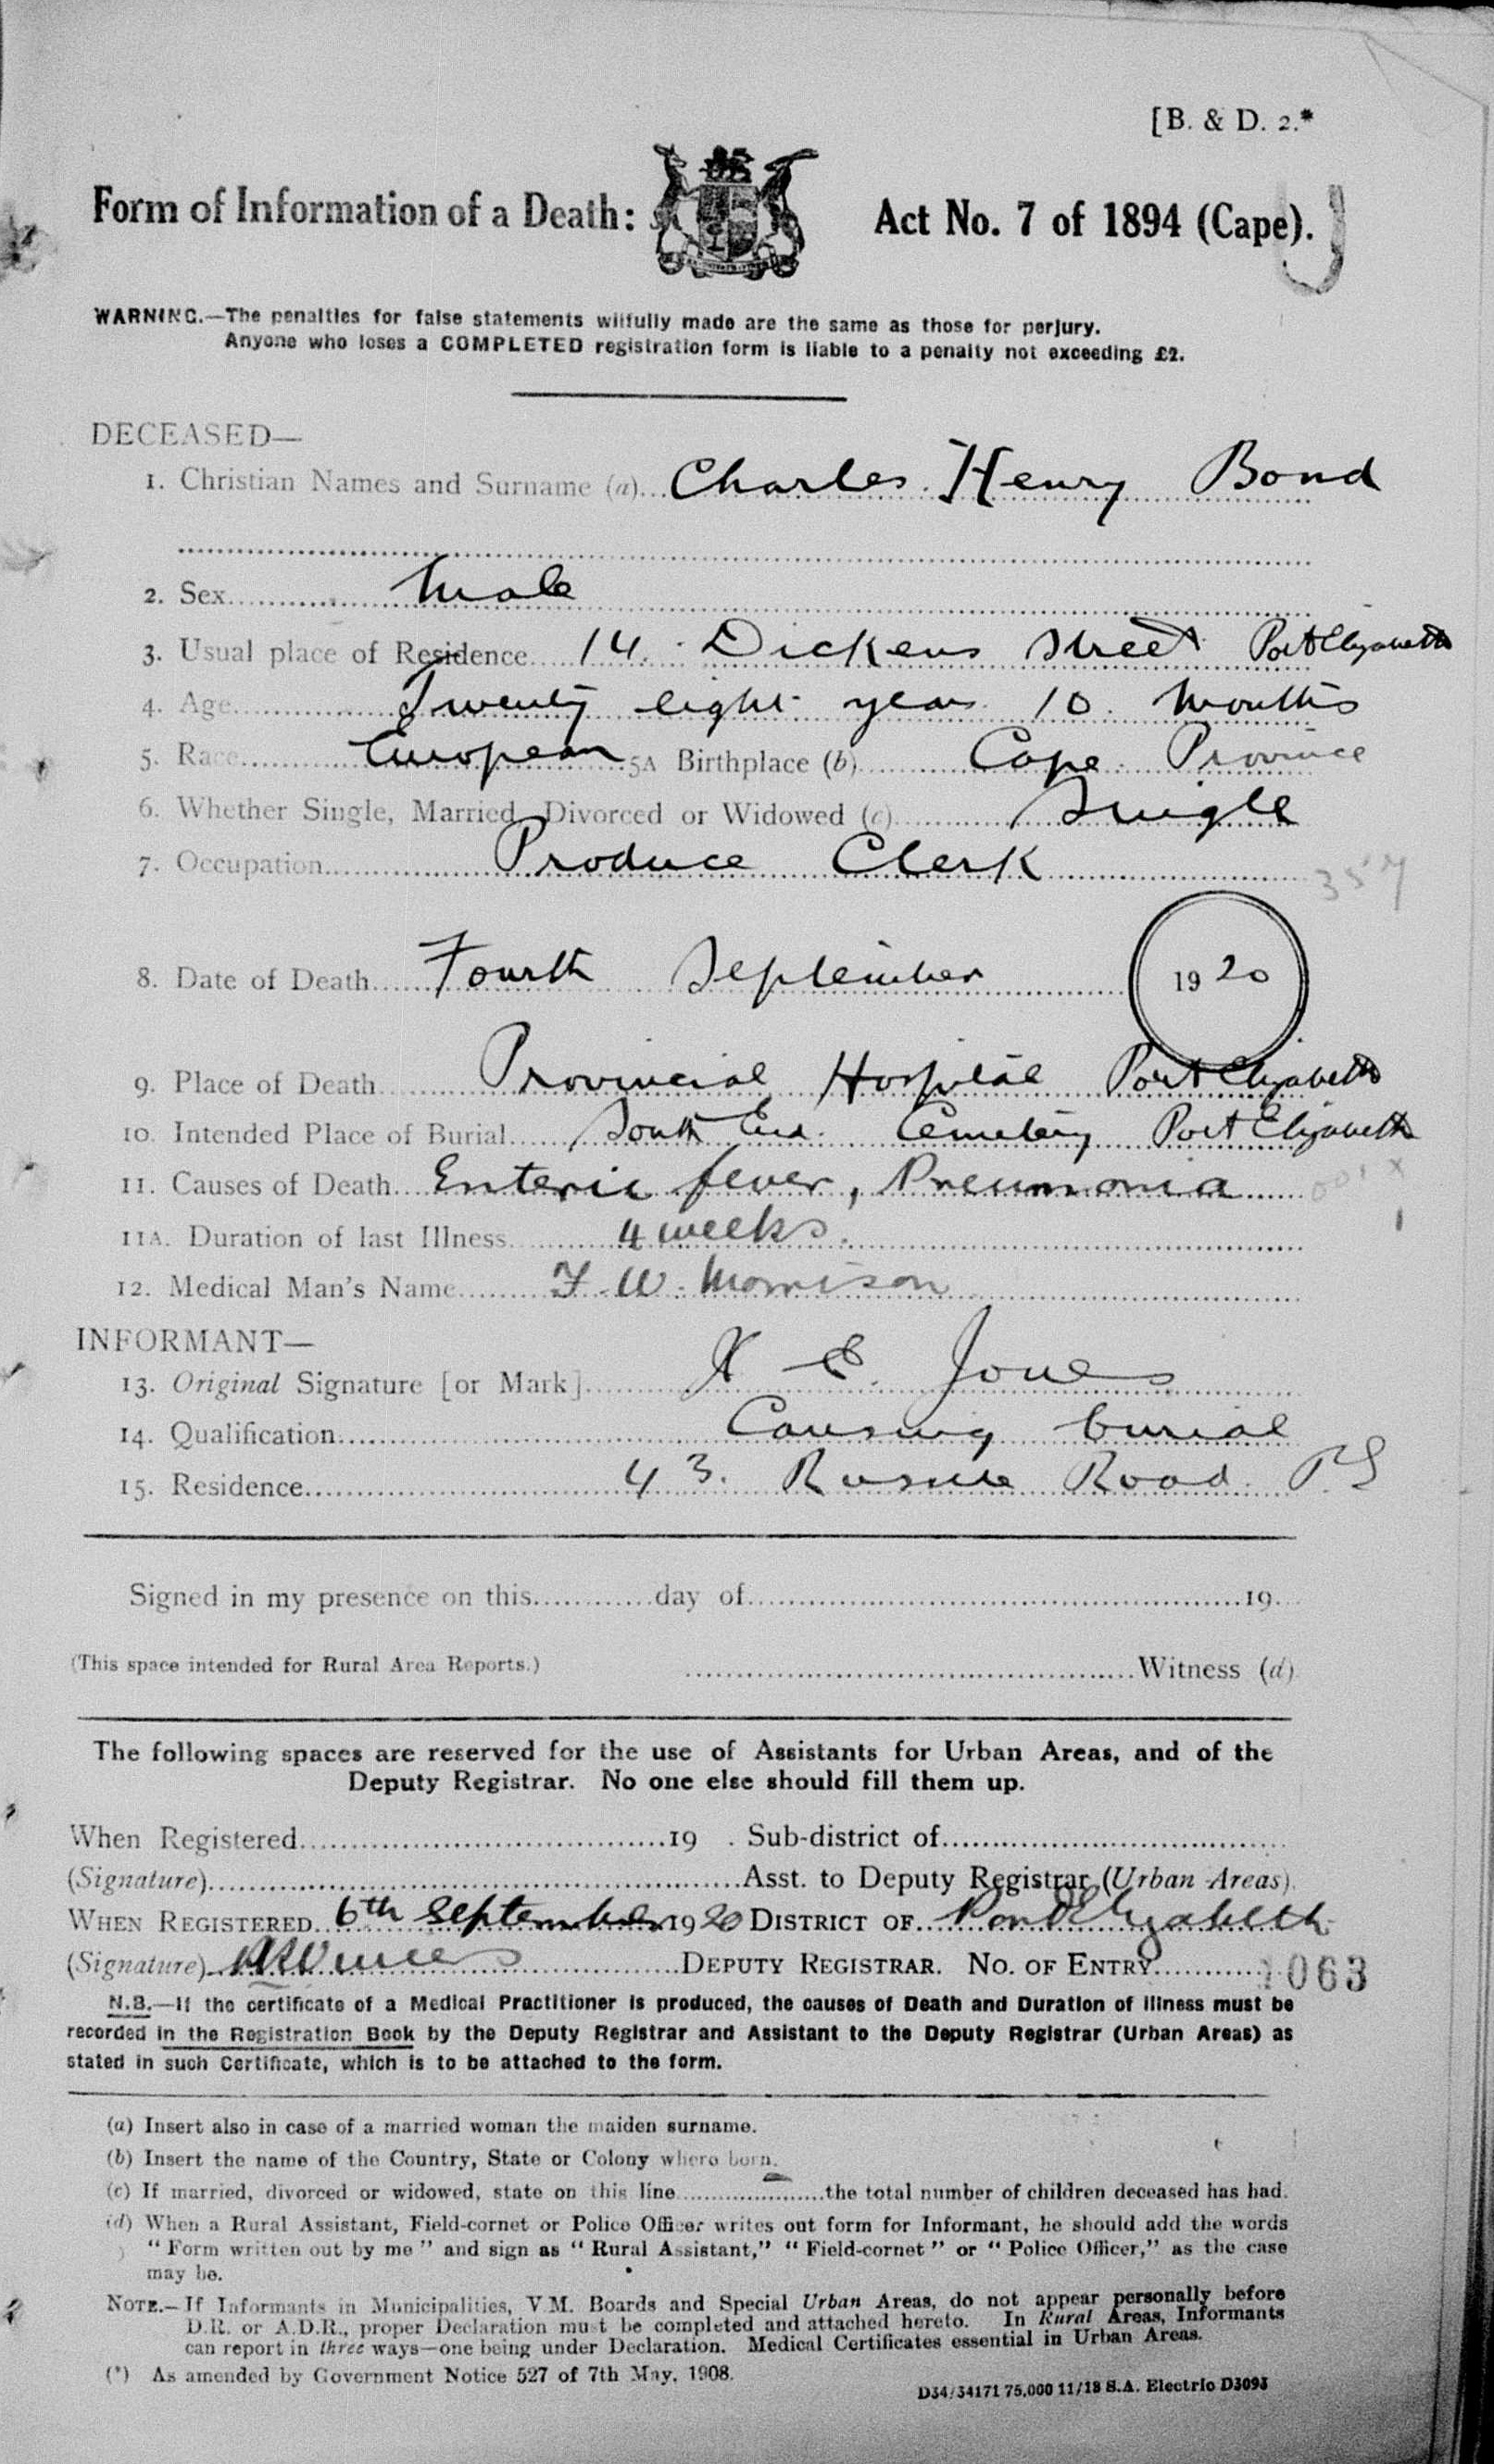 [B. & D. 2.*
Form of Information of a Death: Act No. 7 of 1894 (Cape).
WARNING.—The penalties for false statements wilfully made are the same as those for perjury.
Anyone who loses a COMPLETED registration form is liable to a penalty not exceeding £2.
DECEASED—
1. Christian Names and Surname (a)... Charles Henry Bond
2. Sex... Male
3. Usual place of Residence... 14 Dickens Street Port Elizabeth
4. Age... Twenty eight years 10 Months
5. Race... European 5A Birthplace (b)... Cape Province
6. Whether Single, Married, Divorced or Widowed (c)... Single
7. Occupation... Produce Clerk
357
8. Date of Death... Fourth September 1920
9. Place of Death... Provincial Hospital Port Elizabeth
10. Intended Place of Burial... South End Cemetery Port Elizabeth
11. Causes of Death... Enteric fever, Pneumonia
11A. Duration of last Illness... 4 weeks.
12. Medical Man's Name... F. W. Morrison
INFORMANT—
13. Original Signature [or Mark]... E. Jones
14. Qualification... Causing burial
15. Residence... 43. Road
Signed in my presence on this... day of... 19...
(This space intended for Rural Area Reports.) ...Witness (d)
The following spaces are reserved for the use of Assistants for Urban Areas, and of the
Deputy Registrar. No one else should fill them up.
When Registered... 19 . Sub-district of...
(Signature)... Asst. to Deputy Registrar (Urban Areas).
WHEN REGISTERED... 6th September 1920 DISTRICT OF... Port Elizabeth
(Signature)... DEPUTY REGISTRAR. NO. OF ENTRY... 1063
N.B.—If the certificate of a Medical Practitioner is produced, the causes of Death and Duration of Illness must be
recorded in the Registration Book by the Deputy Registrar and Assistant to the Deputy Registrar (Urban Areas) as
stated in such Certificate, which is to be attached to the form.
(a) Insert also in case of a married woman the maiden surname.
(b) Insert the name of the Country, State or Colony where born.
(c) If married, divorced or widowed, state on this line... the total number of children deceased has had.
(d) When a Rural Assistant, Field-cornet or Police Officer writes out form for Informant, he should add the words
"Form written out by me" and sign as "Rural Assistant," "Field-cornet" or "Police Officer," as the case
may be.
NOTE.—If Informants in Municipalities, V.M. Boards and Special Urban Areas, do not appear personally before
D.R. or A.D.R., proper Declaration must be completed and attached hereto. In Rural Areas, Informants
can report in three ways—one being under Declaration. Medical Certificates essential in Urban Areas.
(*) As amended by Government Notice 527 of 7th May, 1908.
D34/34171 75,000 11/18 S.A. Electric D3093